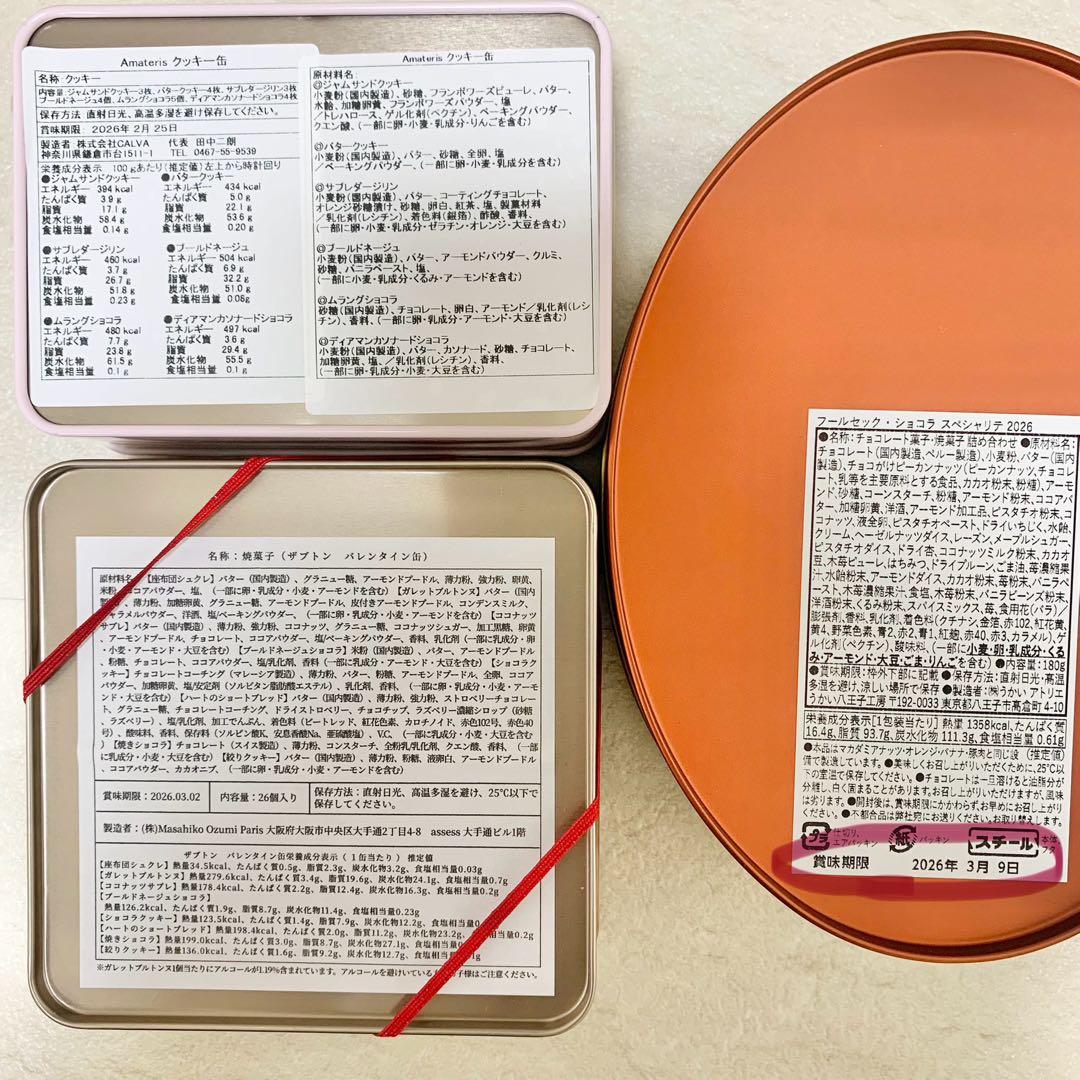 Amateris クッキー缶
名称：クッキー
内容量：ジャムサンドクッキー3枚、バタークッキー4枚、サブレダージリン3枚
ブールドネージュ4個、ムラングショコラ5個、ディアマンカソナードショコラ4枚
保存方法 直射日光、高温多湿を避け保存してください。
賞味期限：2026年2月25日
製造者：株式会社CALVA 代表 田中二朗
神奈川県鎌倉市台1511-1 TEL 0467-55-9539
栄養成分表示 100gあたり(推定値)左上から時計回り
●ジャムサンドクッキー
エネルギー 394 kcal
たんぱく質 3.9 g
脂質 17.1 g
炭水化物 58.4 g
食塩相当量 0.14 g
●バタークッキー
エネルギー 434 kcal
たんぱく質 5.0 g
脂質 22.1 g
炭水化物 53.6 g
食塩相当量 0.20 g
●サブレダージリン
エネルギー 460 kcal
たんぱく質 3.7 g
脂質 26.7 g
炭水化物 51.8 g
食塩相当量 0.23 g
●ブールドネージュ
エネルギー 504 kcal
たんぱく質 6.9 g
脂質 32.2 g
炭水化物 51.0 g
食塩相当量 0.08g
●ムラングショコラ
エネルギー 480 kcal
たんぱく質 7.7 g
脂質 23.8 g
炭水化物 61.5 g
食塩相当量 0.1 g
●ディアマンカソナードショコラ
エネルギー 497 kcal
たんぱく質 3.6 g
脂質 29.4 g
炭水化物 55.5 g
食塩相当量 0.1 g
Amateris クッキー缶
原材料名：
@ジャムサンドクッキー
小麦粉(国内製造)、砂糖、フランボワーズピューレ、バター、
水飴、加糖卵黄、フランボワーズパウダー、塩
/トレハロース、ゲル化剤(ペクチン)、ベーキングパウダー、
クエン酸、(一部に卵・小麦・乳成分・りんごを含む)
@バタークッキー
小麦粉(国内製造)、バター、砂糖、全卵、塩
/ベーキングパウダー、(一部に卵・小麦・乳成分を含む)
@サブレダージリン
小麦粉(国内製造)、バター、コーティングチョコレート、
オレンジ砂糖漬け、砂糖、卵白、紅茶、塩、製菓材料
/乳化剤(レシチン)、着色料(銀箔)、酢酸、香料、
(一部に卵・小麦・乳成分・ゼラチン・オレンジ・大豆を含む)
@ブールドネージュ
小麦粉(国内製造)、バター、アーモンドパウダー、クルミ、
砂糖、バニラペースト、塩、
(一部に小麦・乳成分・くるみ・アーモンドを含む)
@ムラングショコラ
砂糖(国内製造)、チョコレート、卵白、アーモンド/乳化剤(レシ
チン)、香料、(一部に卵・乳成分・アーモンド・大豆を含む)
@ディアマンカソナードショコラ
小麦粉(国内製造)、バター、カソナード、砂糖、チョコレート、
加糖卵黄、塩、/乳化剤(レシチン)、香料、
(一部に卵・乳成分・小麦・大豆を含む)
フールセック・ショコラ スペシャリテ 2026
●名称：チョコレート菓子・焼菓子 詰め合わせ ●原材料名：
チョコレート(国内製造、ペルー製造)、小麦粉、バター(国内
製造)、チョコがけピーカンナッツ(ピーカンナッツ、チョコレ
ート、乳等を主要原料とする食品、カカオ粉末、粉糖)、アーモ
ンド、砂糖、コーンスターチ、粉糖、アーモンド粉末、ココアバ
ター、加糖卵黄、洋酒、アーモンド加工品、ピスタチオ粉末、コ
コナッツ、液全卵、ピスタチオペースト、ドライいちじく、水飴、
クリーム、ヘーゼルナッツダイス、レーズン、メープルシュガー、
ピスタチオダイス、ドライ杏、ココナッツミルク粉末、カカオ
豆、木苺ピューレ、はちみつ、ドライプルーン、ごま油、苺濃縮果
汁、水飴粉末、アーモンドダイス、カカオ粉末、苺粉末、バニラペー
スト、木苺濃縮果汁、食塩、木苺粉末、バニラビーンズ粉末、
洋酒粉末、くるみ粉末、スパイスミックス、苺、食用花(バラ)/
膨張剤、香料、乳化剤、着色料(クチナシ、金箔、赤102、紅花黄、
黄4、野菜色素、青2、赤2、青1、紅麹、赤40、赤3、カラメル)、ゲ
ル化剤(ペクチン)、酸味料、(一部に小麦・卵・乳成分・くる
み・アーモンド・大豆・ごま・りんごを含む) ●内容量：180g
●賞味期限：枠外下部に記載 ●保存方法：直射日光・高温
多湿を避け、涼しい場所で保存 ●製造者：㈱うかい アトリエ
うかい八王子工房 〒192-0033 東京都八王子市高倉町 4-10
栄養成分表示[1包装当たり] 熱量 1358kcal、たんぱく質
16.4g、脂質 93.7g、炭水化物 111.3g、食塩相当量 0.61g
●本品はマカダミアナッツ・オレンジ・バナナ・豚肉と同じ設 (推定値)
備で製造しています。●美しくお召し上がりいただくために、25℃以
下の室温で保存してください。●チョコレートは一旦溶けると油脂分が
分離し、白く固まることがあります。お召し上がりいただけますが、風味
は劣ります。●開封後は、賞味期限にかかわらず、お早めにお召し上がり
ください。●不都合品は弊社宛にお送りください。お取り替えします。
プラ 仕切り、エアパッキン 紙 パッキン スチール 本体 フタ
賞味期限 2026年 3月 9日
名称：焼菓子（ザブトン バレンタイン缶）
原材料名：【座布団シュクレ】バター（国内製造）、グラニュー糖、アーモンドプードル、薄力粉、強力粉、卵黄、
米粉、ココアパウダー、塩、（一部に卵・乳成分・小麦・アーモンドを含む）【ガレットブルトンヌ】バター（国内
製造）、薄力粉、加糖卵黄、グラニュー糖、アーモンドプードル、皮付きアーモンドプードル、コンデンスミルク、
キャラメルパウダー、洋酒、塩/ベーキングパウダー、（一部に卵・乳成分・小麦・アーモンドを含む）【ココナッツ
サブレ】バター（国内製造）、薄力粉、強力粉、ココナッツ、グラニュー糖、ココナッツシュガー、加工黒糖、卵黄
、アーモンドプードル、チョコレート、ココアパウダー、塩/ベーキングパウダー、香料、乳化剤（一部に乳成分・卵
・小麦・アーモンド・大豆を含む）【ブールドネージュショコラ】米粉（国内製造）、バター、アーモンドプードル
、粉糖、チョコレート、ココアパウダー、塩/乳化剤、香料（一部に乳成分・アーモンド・大豆を含む）【ショコラク
ッキー】チョコレートコーチング（マレーシア製造）、薄力粉、バター、粉糖、アーモンドプードル、全卵、ココア
パウダー、加糖卵黄、塩/安定剤（ソルビタン脂肪酸エステル）、乳化剤、香料、（一部に卵・乳成分・小麦・アーモ
ンド・大豆を含む）【ハートのショートブレッド】バター（国内製造）、薄力粉、強力粉、ストロベリーチョコレー
ト、グラニュー糖、チョコレートコーチング、ドライストロベリー、チョコチップ、ラズベリー濃縮シロップ（砂糖
、ラズベリー）、塩/乳化剤、加工でんぷん、着色料（ビートレッド、紅花色素、カロチノイド、赤色102号、赤色40
号）、酸味料、香料、保存料（ソルビン酸K、安息香酸Na、亜硫酸塩）、V.C、（一部に乳成分・小麦・大豆を含む）
【焼きショコラ】チョコレート（スイス製造）、薄力粉、コンスターチ、全粉乳/乳化剤、クエン酸、香料、（一部
に乳成分・小麦・大豆を含む）【絞りクッキー】バター（国内製造）、薄力粉、粉糖、液卵白、アーモンドプードル
、ココアパウダー、カカオニブ、（一部に卵・乳成分・小麦・アーモンドを含む）
賞味期限：2026.03.02 内容量：26個入り 保存方法：直射日光、高温多湿を避け、25℃以下で
保存してください。
製造者：(株)Masahiko Ozumi Paris 大阪府大阪市中央区大手通2丁目4-8 assess 大手通ビル1階
ザブトン バレンタイン缶栄養成分表示（1缶当たり）推定値
【座布団シュクレ】熱量34.5kcal、たんぱく質0.5g、脂質2.3g、炭水化物3.2g、食塩相当量0.03g
【ガレットブルトンヌ】熱量279.6kcal、たんぱく質3.4g、脂質19.6g、炭水化物24.1g、食塩相当量0.7g
【ココナッツサブレ】熱量178.4kcal、たんぱく質2.2g、脂質12.4g、炭水化物16.3g、食塩相当量0.2g
【ブールドネージュショコラ】
熱量126.2kcal、たんぱく質1.9g、脂質8.7g、炭水化物11.4g、食塩相当量0.23g
【ショコラクッキー】熱量123.5kcal、たんぱく質1.4g、脂質7.9g、炭水化物12.2g、食塩相当量
【ハートのショートブレッド】熱量198.4kcal、たんぱく質2.0g、脂質11.2g、炭水化物23.2g、食塩相当量0.2g
【焼きショコラ】熱量199.0kcal、たんぱく質3.0g、脂質8.7g、炭水化物27.1g、食塩相当量
【絞りクッキー】熱量136.0kcal、たんぱく質1.6g、脂質9.2g、炭水化物12.7g、食塩相当量
※ガレットブルトンヌ1個当たりにアルコールが1.19%含まれています。アルコールを避けている 子様はご注意ください。